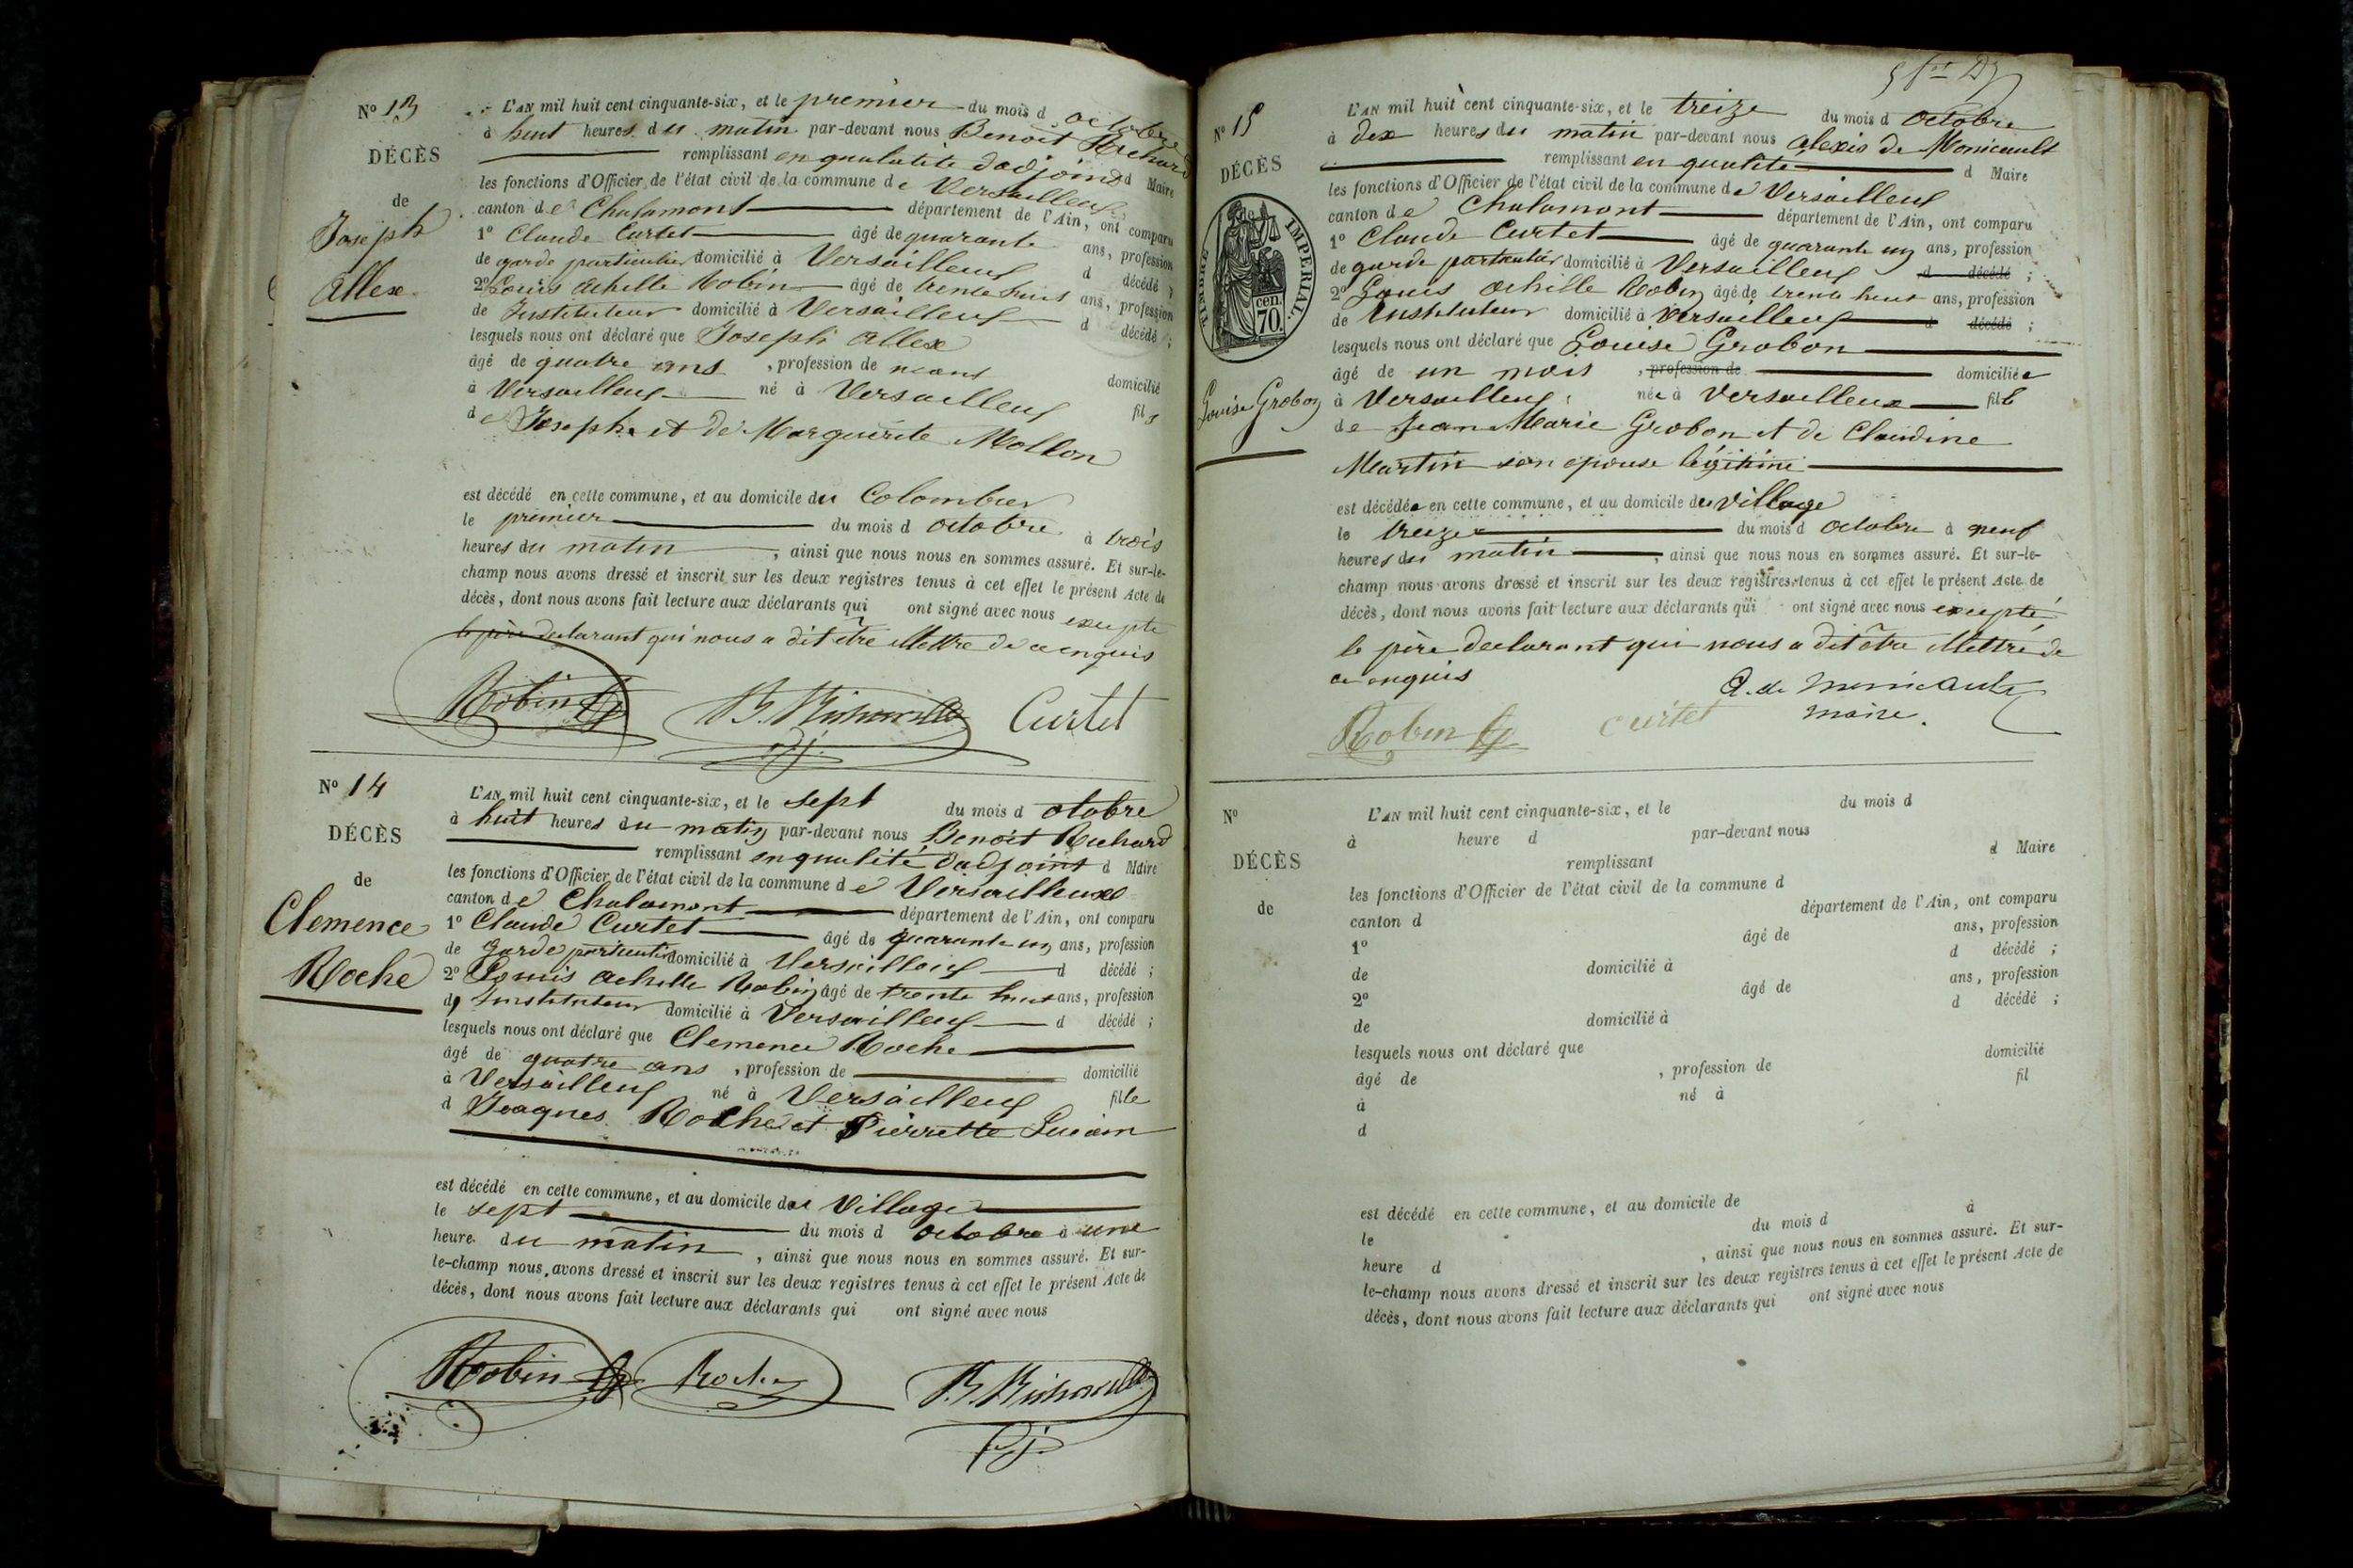 Nº 13
DÉCÈS
de
Joseph
Allex
L'AN mil huit cent cinquante-six, et le premier du mois d octobre
à huit heures du matin par-devant nous Benoit Richard
remplissant en qualatité dadjoint d Maire
les fonctions d'Officier de l'état civil de la commune de Versailleux
canton de Chalamont département de l'Ain, ont comparu
1º Claude Curtet âgé de quarante ans, profession
de garde particulier domicilié à Versailleux d décédé ;
2º Louis Achille Robin âgé de trente huit ans, profession
de Instituteur domicilié à Versailleux d décédé ;
lesquels nous ont déclaré que Joseph Allex
âgé de quatre ans , profession de neant domicilié
à Versailleux né à Versailleux fils
de Joseph et de Marguerite Mollon
est décédé en cette commune, et au domicile du Colombier
le premier du mois d octobre à trois
heures du matin , ainsi que nous nous en sommes assuré. Et sur-le-
champ nous avons dressé et inscrit sur les deux registres tenus à cet effet le présent Acte de
décès, dont nous avons fait lecture aux déclarants qui ont signé avec nous excepté
le père declarant qui nous a dit être illettré de ce enquis
Robin B. Richard Curtet
adj.
Nº 14
DÉCÈS
de
Clemence
Roche
L'AN mil huit cent cinquante-six, et le sept du mois d otobre
à huit heures du matin par-devant nous Benoit Richard
remplissant en qualité dadjoint d Maire
les fonctions d'Officier de l'état civil de la commune de Versailleux
canton de Chalamont département de l'Ain, ont comparu
1º Claude Curtet âgé de quarante un ans, profession
de garde particulier domicilié à Versailleux d décédé ;
2º Louis Achille Robin âgé de trente huit ans, profession
d'Instituteur domicilié à Versailleux d décédé ;
lesquels nous ont déclaré que Clemence Roche
âgé de quatre ans , profession de domicilié
à Versailleux né à Versailleux fille
d Jeaques Roche et Pierrette
est décédé en cette commune, et au domicile du Village
le sept du mois d octobre à une
heure du matin , ainsi que nous nous en sommes assuré. Et sur-
le-champ nous avons dressé et inscrit sur les deux registres tenus à cet effet le présent Acte de
décès, dont nous avons fait lecture aux déclarants qui ont signé avec nous
Robin Roche B. Richard
adj.
Nº 15
DÉCÈS
de
TIMBRE IMPERIAL.
70 cen.
Louise Grobon
L'AN mil huit cent cinquante-six, et le treize du mois d octobre
à dix heures du matin par-devant nous Alexis de Monicault
remplissant en qualité d Maire
les fonctions d'Officier de l'état civil de la commune de Versailleux
canton de Chalamont département de l'Ain, ont comparu
1º Claude Curtet âgé de quarante un ans, profession
de garde particulier domicilié à Versailleux d décédé ;
2º Louis Achille Robin âgé de trente huit ans, profession
de Instituteur domicilié à Versailleux d décédé ;
lesquels nous ont déclaré que Louise Grobon
âgé de un mois , profession de domiciliée
à Versailleux, née à Versailleux fille
de Jean Marie Grobon et de Claudine
Martin son epouse légitime
est décédée en cette commune, et au domicile du village
le treize du mois d octobre à neuf
heures du matin , ainsi que nous nous en sommes assuré. Et sur-le-
champ nous avons dressé et inscrit sur les deux registres tenus à cet effet le présent Acte de
décès, dont nous avons fait lecture aux déclarants qui ont signé avec nous excepté
le père declarant qui nous a dit être illettré de
ce enquis
A. de Monicault
maire.
Robin Curtet
Nº
DÉCÈS
de
L'AN mil huit cent cinquante-six, et le du mois d
à heure d par-devant nous
remplissant d Maire
les fonctions d'Officier de l'état civil de la commune d
canton d département de l'Ain, ont comparu
1º âgé de ans, profession
de domicilié à d décédé ;
2º âgé de ans, profession
de domicilié à d décédé ;
lesquels nous ont déclaré que
âgé de , profession de domicilié
à né à fil
d
est décédé en cette commune, et au domicile de
le du mois d à
heure d , ainsi que nous nous en sommes assuré. Et sur-
le-champ nous avons dressé et inscrit sur les deux registres tenus à cet effet le présent Acte de
décès, dont nous avons fait lecture aux déclarants qui ont signé avec nous